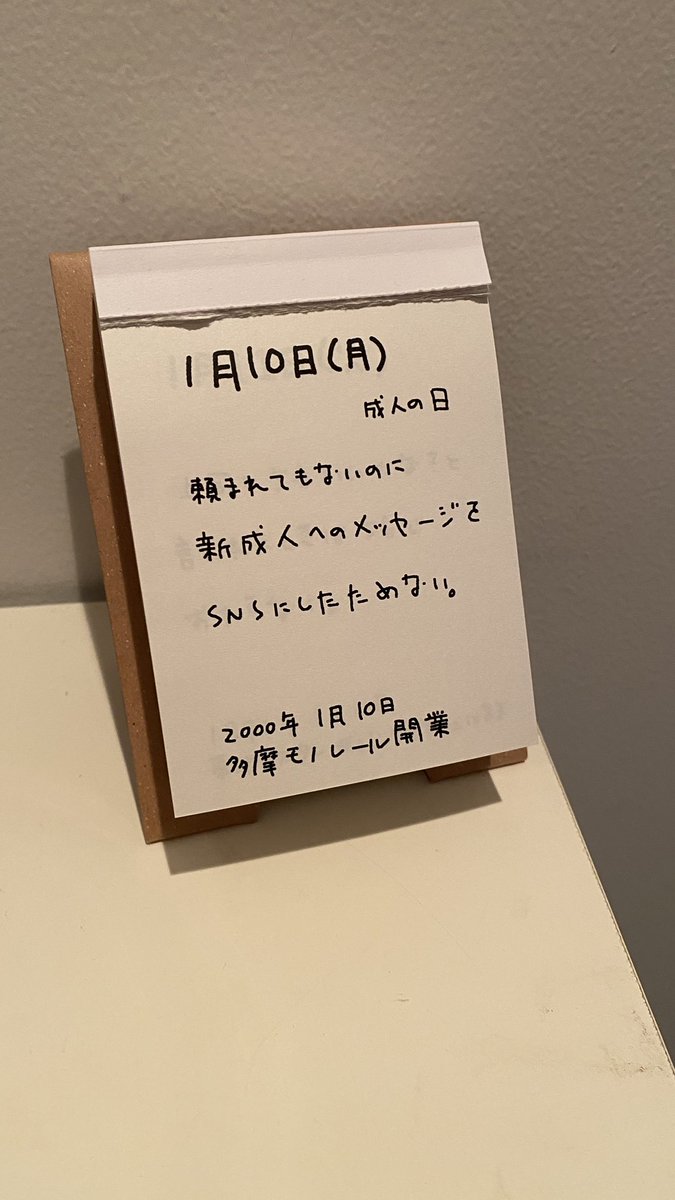 1月10日(月)
成人の日
頼まれてもないのに
新成人へのメッセージを
SNSにしたためない。
2000年 1月10日
多摩モノレール開業